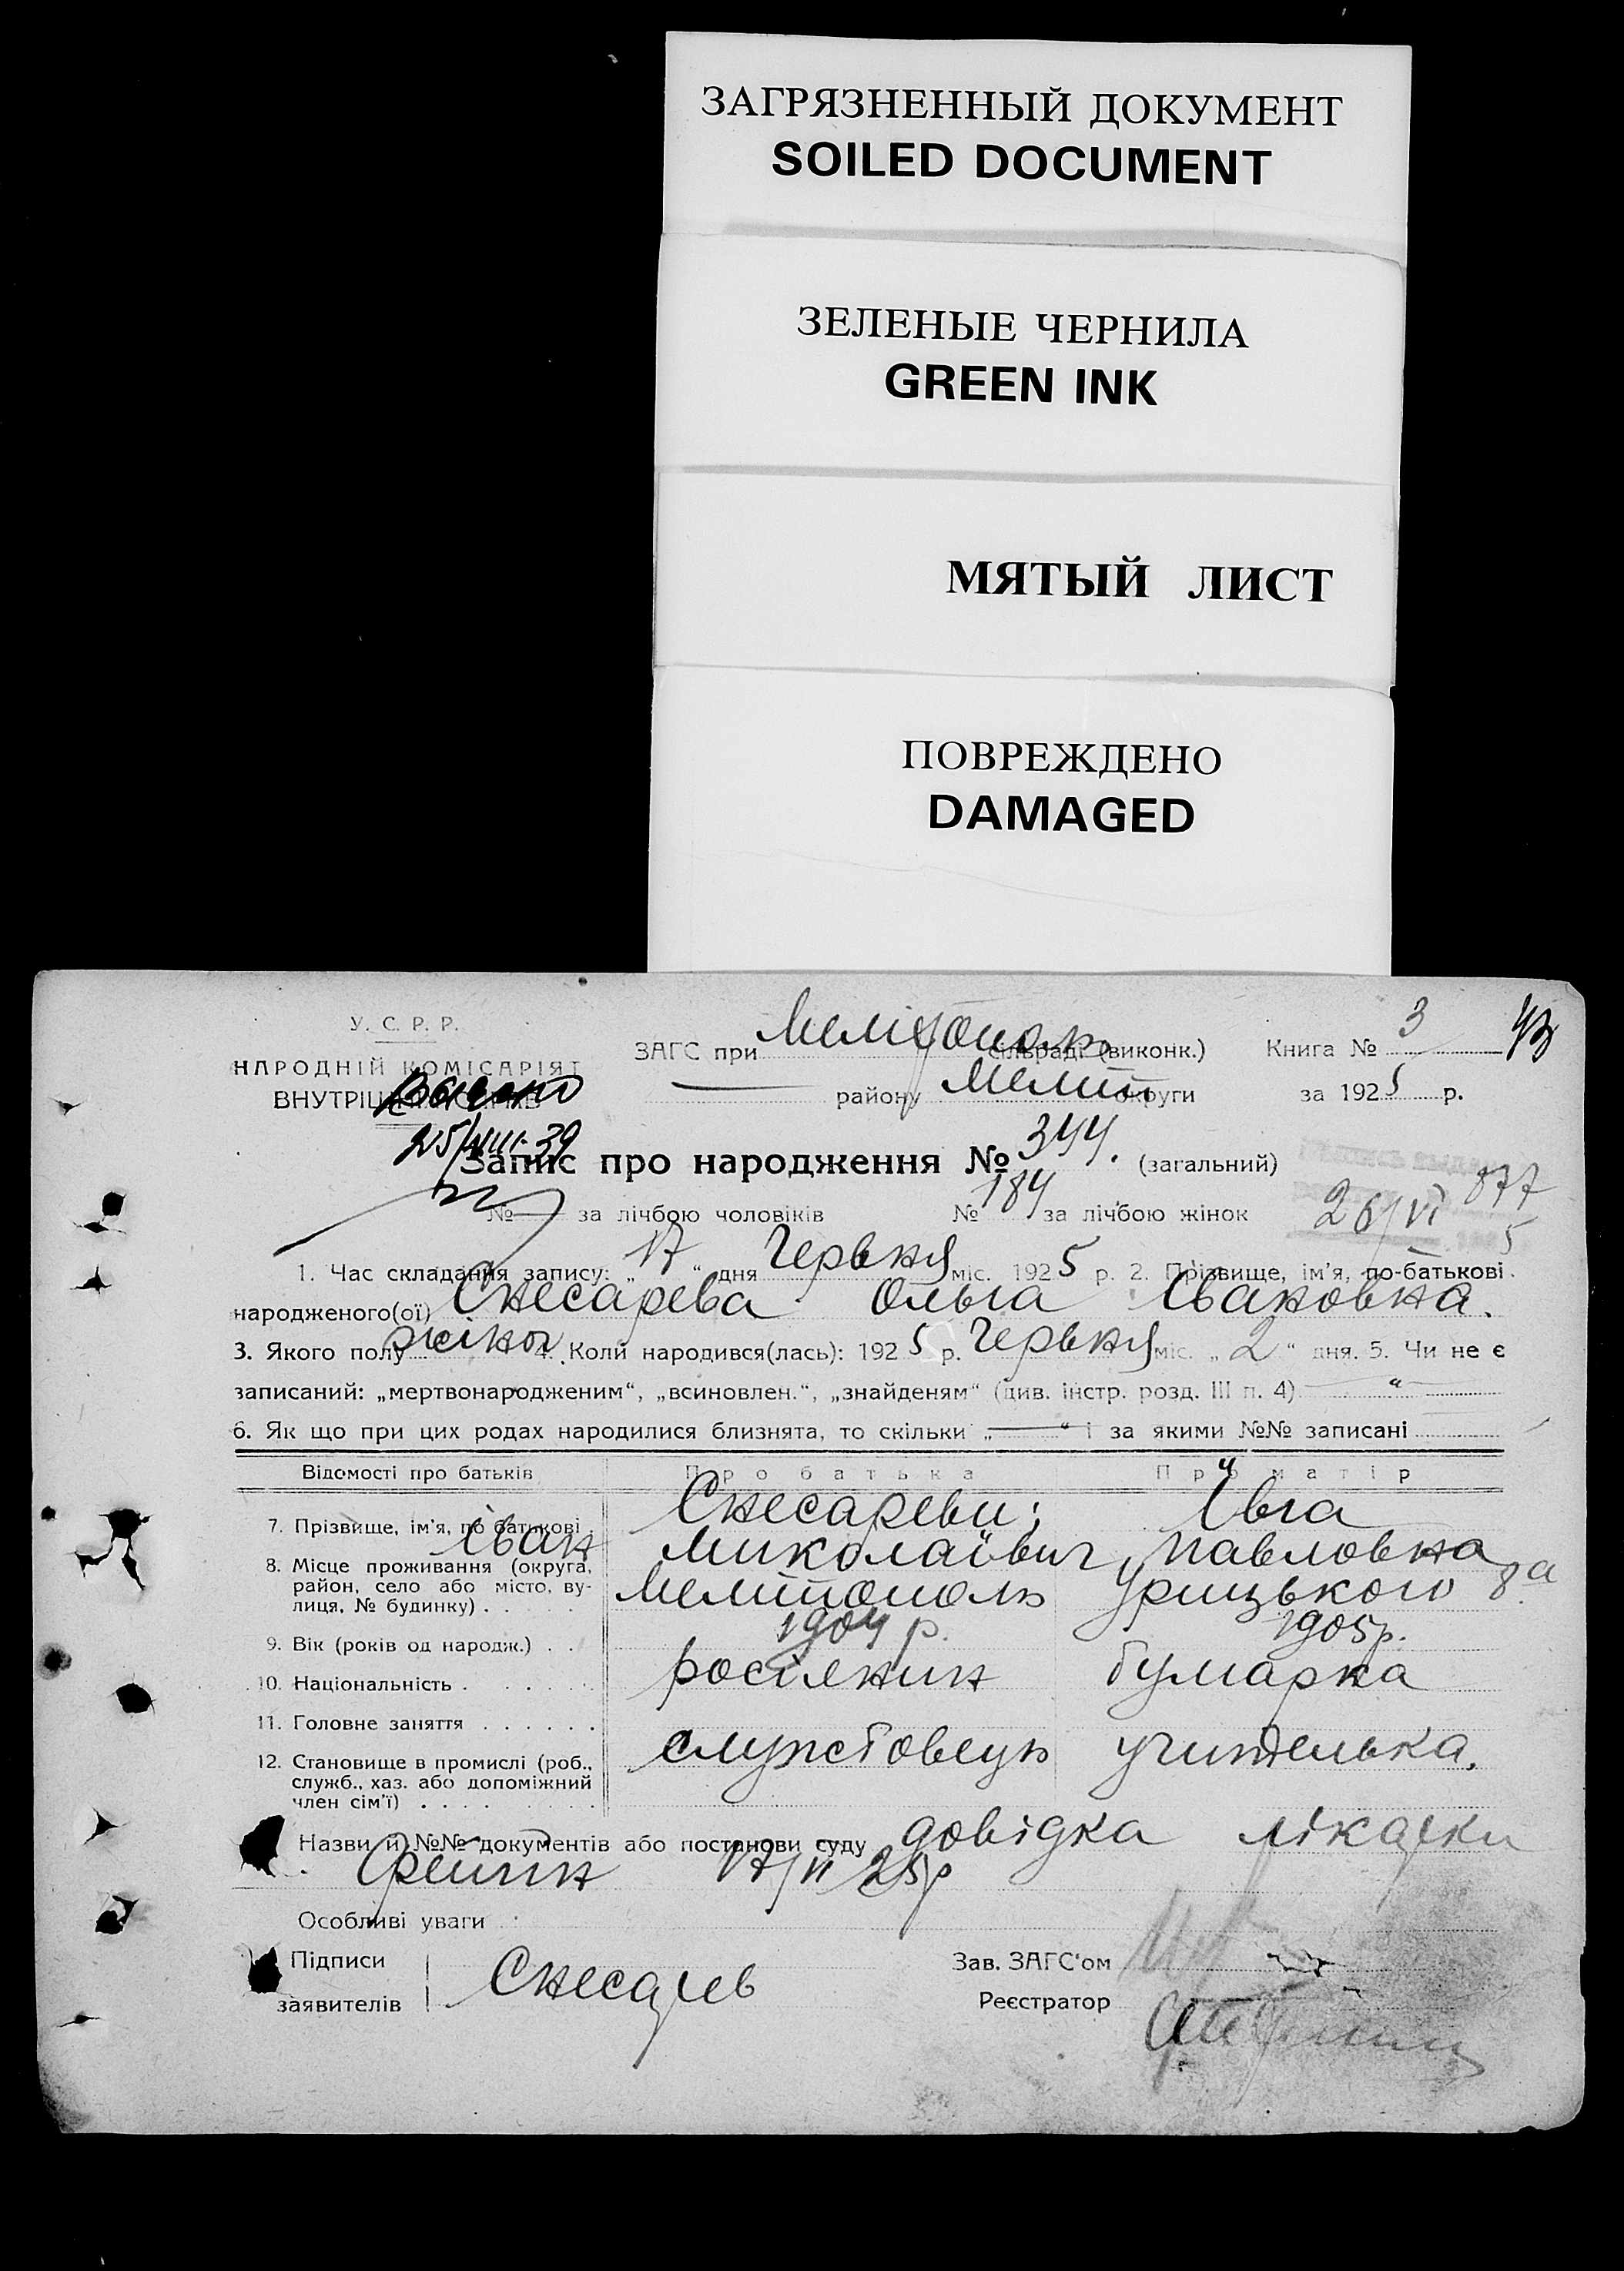 ЗАГРЯЗНЕННЫЙ ДОКУМЕНТ
SOILED DOCUMENT
ЗЕЛЕНЫЕ ЧЕРНИЛА
GREEN INK
МЯТЫЙ ЛИСТ
ПОВРЕЖДЕНО
DAMAGED
У. С. Р. Р.
НАРОДНІЙ КОМІСАРІЯТ
ВНУТРІШ
25/VIII-39
ЗАГС при Мелітополь сільраді (виконк.) Книга № 3
району Меліт округи за 1925 р.
Запис про народження № 344. (загальний)
№ — за лічбою чоловіків № 184 за лічбою жінок 26/VI 877
5
1. Час складання запису: „ 17 “ дня Червня міс. 1925 р. 2. Прізвище, ім'я, по-батькові
народженого(ої) Снесарева Ольга Івановна.
3. Якого полу жіноч. 4. Коли народився(лась): 1925 р. Червня міс. „ 2 “ дня. 5. Чи не є
записаний: „мертвонародженим“, „всиновлен.“, „знайденям“ (див. інстр. розд. III п. 4) — “ —
6. Як що при цих родах народилися близнята, то скільки „ — “ і за якими №№ записані
Відомості про батьків Про батька Про матір
7. Прізвище, ім'я, по батькові Снесареви: Івга
Іван Миколаївич, Павловна
8. Місце проживання (округа, район, село або місто, вулиця, № будинку) Мелітополь Урицького 8а
9. Вік (років од народж.) 1904 р. 1905 р.
10. Національність росіянин
11. Головне заняття
12. Становище в промислі (роб., служб., хаз. або допоміжний член сім'ї) службовець учителька.
Назви й №№ документів або постанови суду довідка лікарки
17/VI 25 р
Особливі уваги
Підписи
заявителів Снесарев
Зав. ЗАГС'ом
Реєстратор